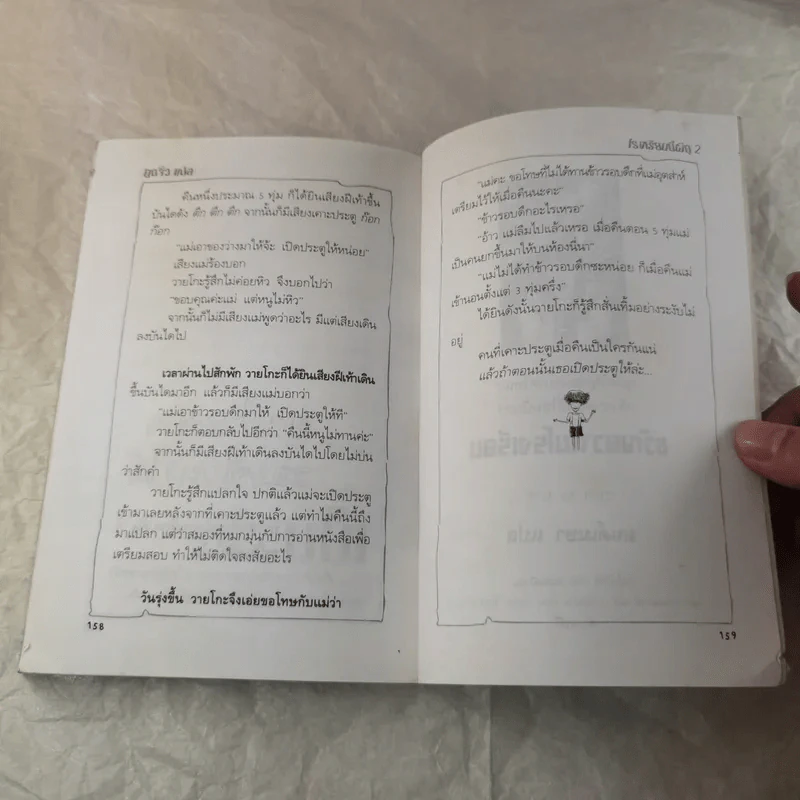 แปล
คืนหนึ่งประมาณ 5 ทุ่ม ก็ได้ยินเสียงฝีเท้าขึ้น
บันไดดัง ตึก ตึก ตึก จากนั้นก็มีเสียงเคาะประตู ก๊อก
ก๊อก
"แม่เอาของว่างมาให้จ้ะ เปิดประตูให้หน่อย"
เสียงแม่ร้องบอก
วายโกะรู้สึกไม่ค่อยหิว จึงบอกไปว่า
"ขอบคุณค่ะแม่ แต่หนูไม่หิว"
จากนั้นก็ไม่มีเสียงแม่พูดว่าอะไร มีแต่เสียงเดิน
ลงบันไดไป
เวลาผ่านไปสักพัก วายโกะก็ได้ยินเสียงฝีเท้าเดิน
ขึ้นบันไดมาอีก แล้วก็มีเสียงแม่บอกว่า
"แม่เอาข้าวรอบดึกมาให้ เปิดประตูให้ที"
วายโกะก็ตอบกลับไปอีกว่า "คืนนี้หนูไม่ทานค่ะ"
จากนั้นก็มีเสียงฝีเท้าเดินลงบันไดไปโดยไม่บ่น
ว่าสักคำ
วายโกะรู้สึกแปลกใจ ปกติแล้วแม่จะเปิดประตู
เข้ามาเลยหลังจากที่เคาะประตูแล้ว แต่ทำไมคืนนี้ถึง
มาแปลก แต่ว่าสมองที่หมกมุ่นกับการอ่านหนังสือเพื่อ
เตรียมสอบ ทำให้ไม่ติดใจสงสัยอะไร
วันรุ่งขึ้น วายโกะจึงเอ่ยขอโทษกับแม่ว่า
158
โรงเรียนผีดุ 2
"แม่คะ ขอโทษที่ไม่ได้ทานข้าวรอบดึกที่แม่อุตส่าห์
เตรียมไว้ให้เมื่อคืนนะคะ"
"ข้าวรอบดึกอะไรเหรอ"
"อ้าว แม่ลืมไปแล้วเหรอ เมื่อคืนตอน 5 ทุ่มแม่
เป็นคนยกขึ้นมาให้บนห้องนี่นา"
"แม่ไม่ได้ทำข้าวรอบดึกซะหน่อย ก็เมื่อคืนแม่
เข้านอนตั้งแต่ 3 ทุ่มครึ่ง"
ได้ยินดังนั้นวายโกะก็รู้สึกสั่นเทิ้มอย่างระงับไม่
อยู่
คนที่เคาะประตูเมื่อคืนเป็นใครกันแน่
แล้วถ้าตอนนั้นเธอเปิดประตูให้ล่ะ...
159